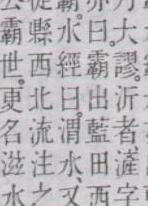 大謬。沂者滻字
曰。霸出藍田西
霸。水經曰。渭水又
縣西北流注之
公霸世。更名滋水